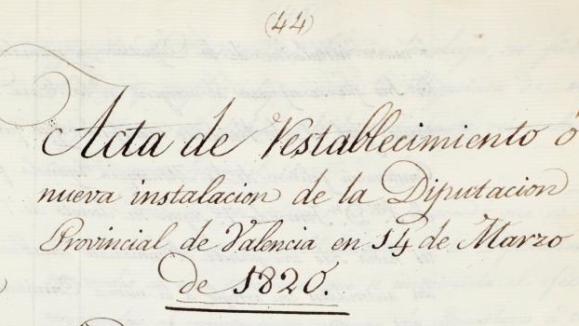 (44)
Acta de restablecimiento ó
nueva instalacion de la Diputacion
Provincial de Valencia en 14 de Marzo
de 1820.